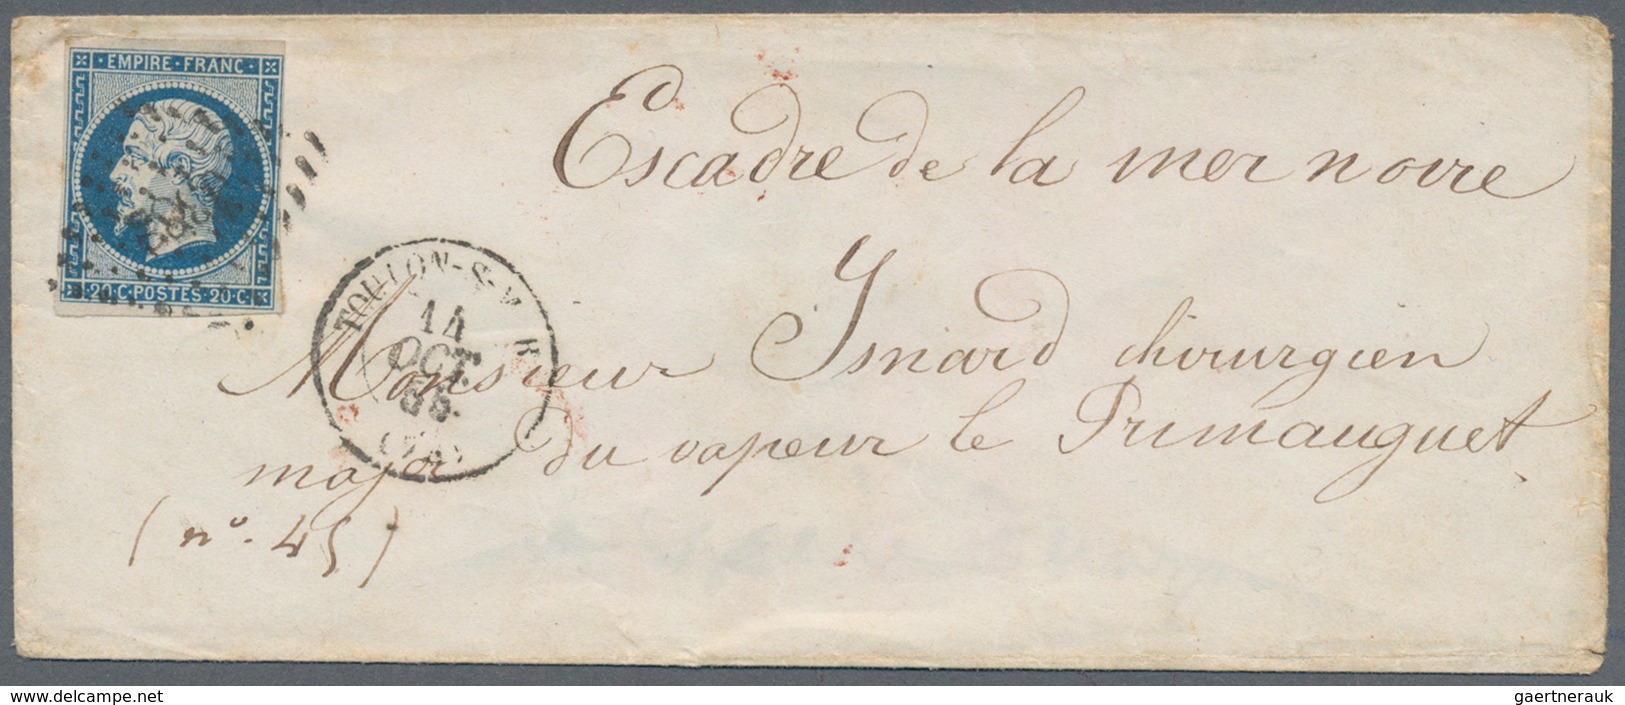 · EMPIRE · FRANC ·
20 · C · POSTES · 20 · C ·
Escadre de la mer noire
TOULON-S-
14
OCT.
55
Monsieur Isnard chirurgien
major du vapeur le Primauguet
(nº. 45)
www.delcampe.net
gaertnerauk